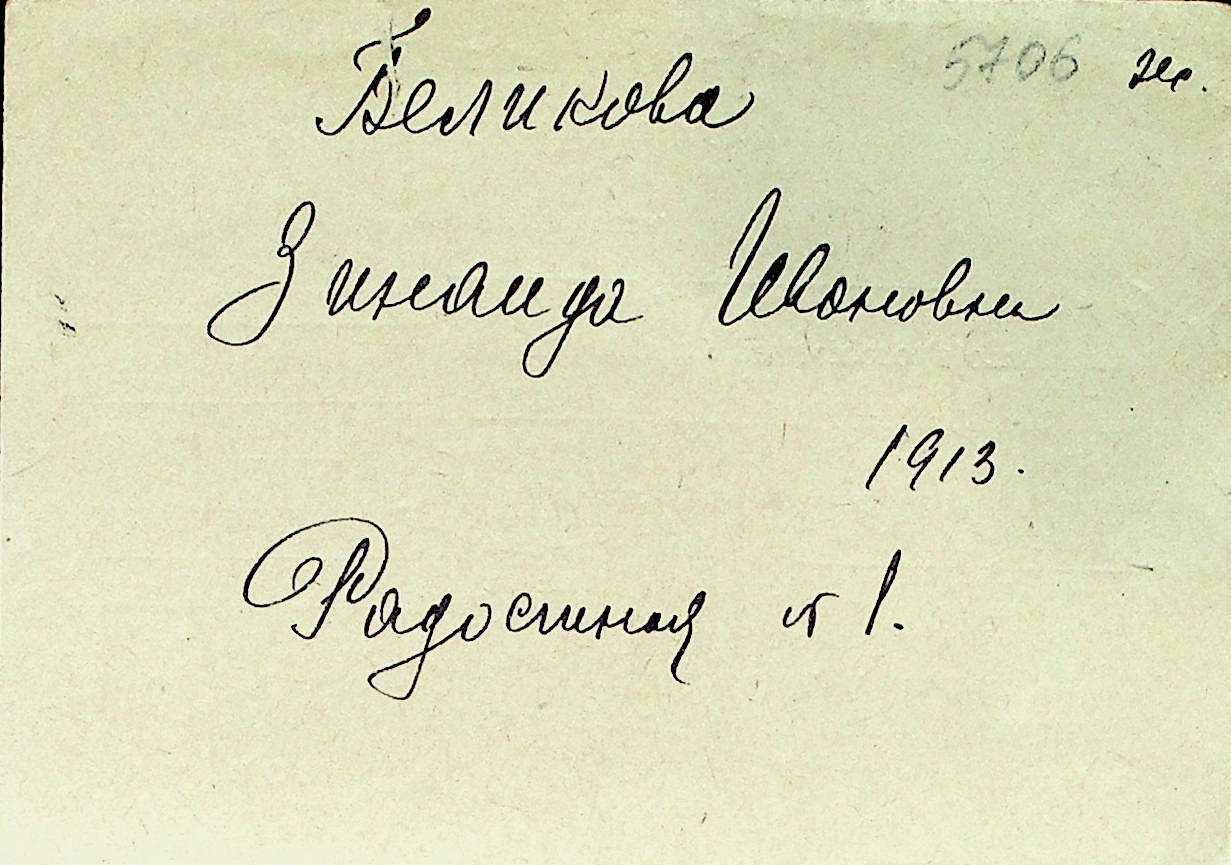 5706 ж.
Беликова
Зинаида Ивановна
1913.
Радостная 1.